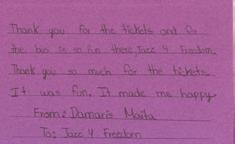 Thank you for the tickets and for
the bus is so fun there Jazz 4 Freedom.
Thank you so much for the tickets.
It was fun. It made me happy
From: Damaris Maita
To: Jazz 4 Freedom